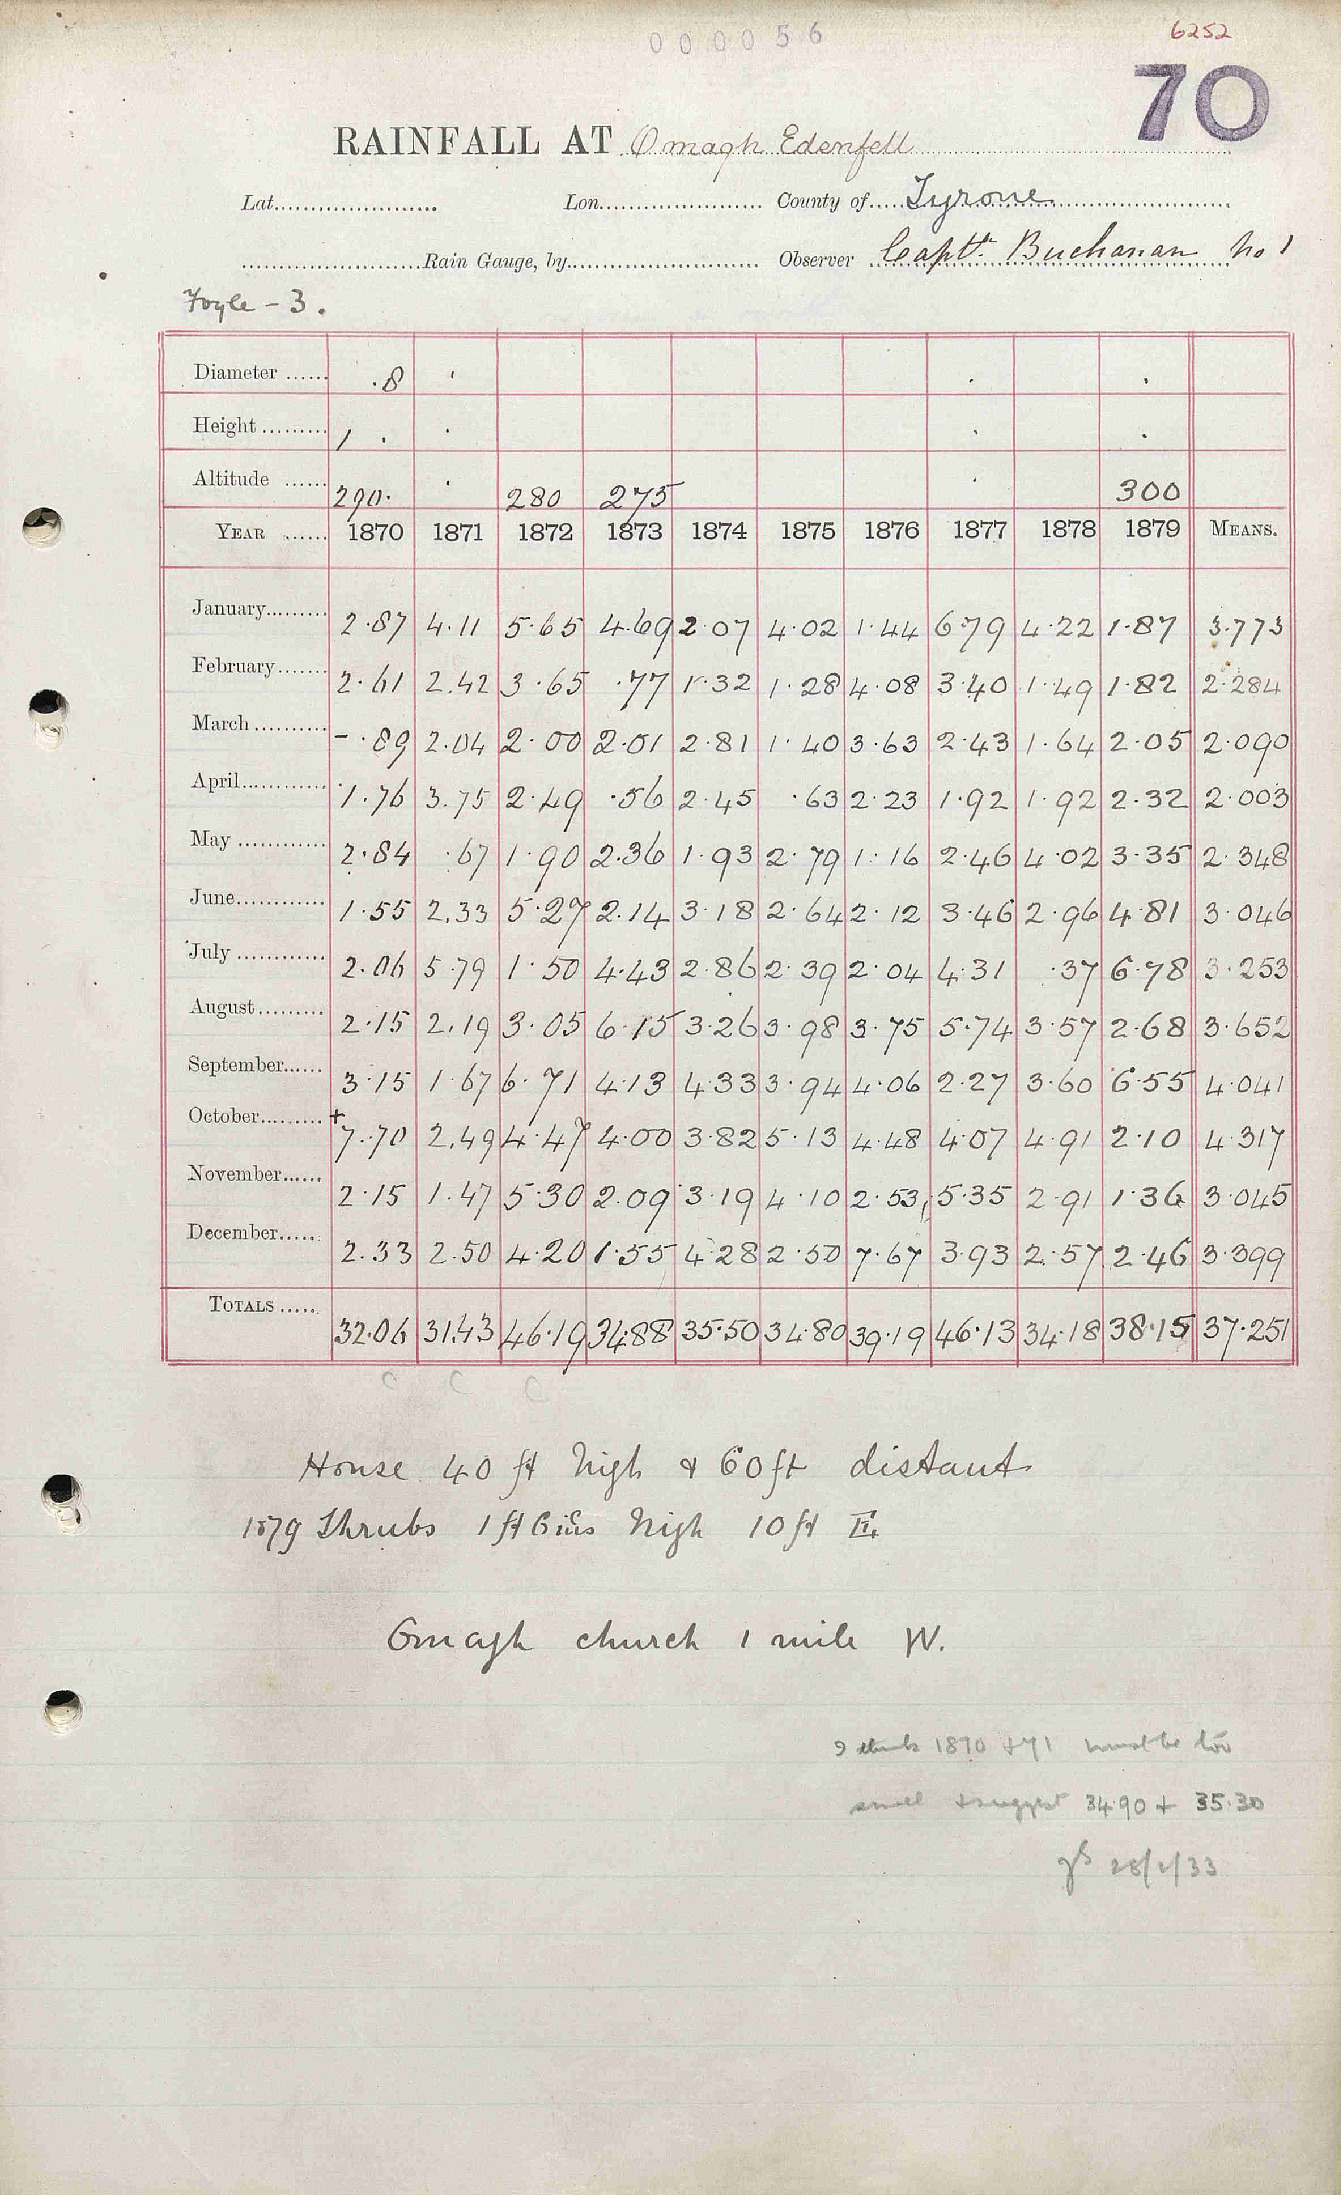 000056
6252
70
RAINFALL AT Omagh Edenfell
Lat. Lon. County of Tyrone
Rain Gauge, by Observer Capt. Buchanan No 1
Foyle - 3.
Diameter .8
Height 1
Altitude 290 280 275 300
YEAR 1870 1871 1872 1873 1874 1875 1876 1877 1878 1879 MEANS.
January 2.87 4.11 5.65 4.69 2.07 4.02 1.44 6.79 4.22 1.87 3.773
February 2.61 2.42 3.65 .77 1.32 1.28 4.08 3.40 1.49 1.82 2.284
March - .89 2.04 2.00 2.01 2.81 1.40 3.63 2.43 1.64 2.05 2.090
April 1.76 3.75 2.49 .56 2.45 .63 2.23 1.92 1.92 2.32 2.003
May 2.84 .67 1.90 2.36 1.93 2.79 1.16 2.46 4.02 3.35 2.348
June 1.55 2.33 5.27 2.14 3.18 2.64 2.12 3.46 2.96 4.81 3.046
July 2.06 5.79 1.50 4.43 2.86 2.39 2.04 4.31 .37 6.78 3.253
August 2.15 2.19 3.05 6.15 3.26 3.98 3.75 5.74 3.57 2.68 3.652
September 3.15 1.67 6.71 4.13 4.33 3.94 4.06 2.27 3.60 6.55 4.041
October + 7.70 2.49 4.47 4.00 3.82 5.13 4.48 4.07 4.91 2.10 4.317
November 2.15 1.47 5.30 2.09 3.19 4.10 2.53 5.35 2.91 1.36 3.045
December 2.33 2.50 4.20 1.55 4.28 2.50 7.67 3.93 2.57 2.46 3.399
TOTALS 32.06 31.43 46.19 34.88 35.50 34.80 39.19 46.13 34.18 38.15 37.251
C C C
House 40 ft high & 60 ft distant
1879 Shrubs 1 ft 6 ins high 10 ft E.
Omagh church 1 mile W.
I think 1870 + 71 must be too
small & suggest 34.90 + 35.30
33